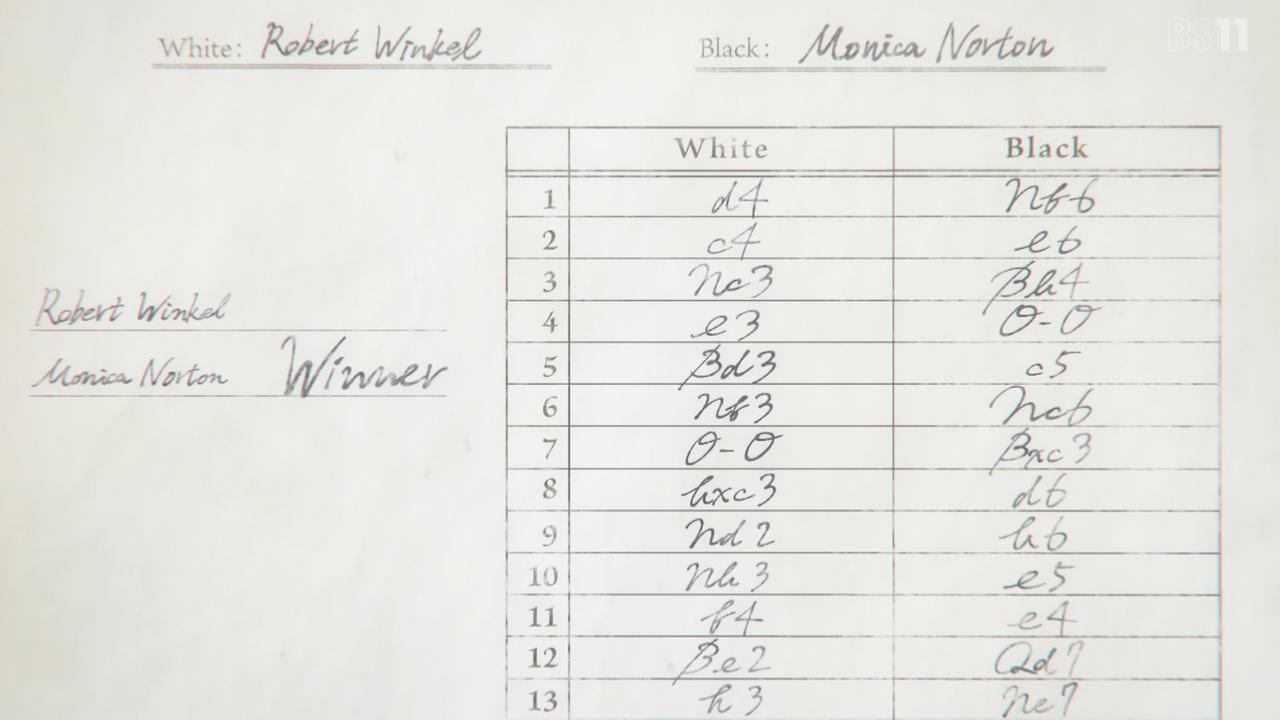 BS11
White: Robert Winkel Black: Monica Norton
White Black
1 d4 Nf6
2 c4 e6
3 Nc3 Bb4
4 e3 O-O
5 Bd3 c5
6 Nf3 Nc6
7 O-O Bxc3
8 bxc3 d6
9 Nd2 b6
10 Nb3 e5
11 f4 e4
12 Be2 Qd7
13 h3 Ne7
Robert Winkel
Monica Norton Winner